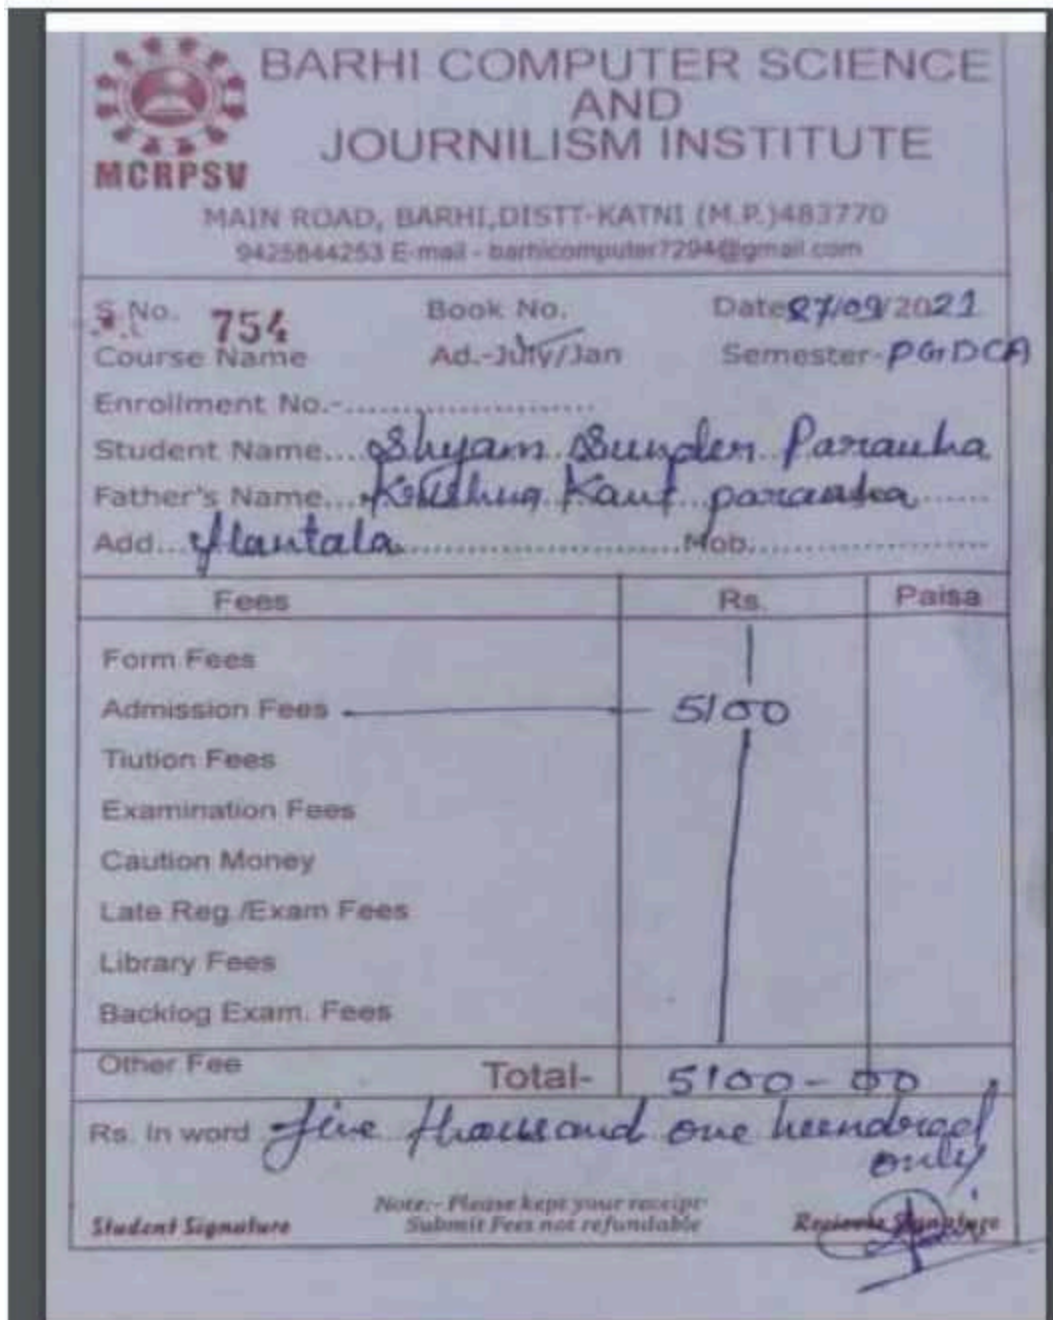 BARHI COMPUTER SCIENCE
AND
JOURNILISM INSTITUTE
MCRPSV
MAIN ROAD, BARHI,DISTT-KATNI (M.P.)483770
9425844253 E-mail - barhicomputer7294@gmail.com
S.No. 754 Book No. Date 27/09/2021
Course Name Ad.-July/Jan Semester- PGDCA
Enrollment No.-........................
Student Name... Shyam Sunder Parauha
Father's Name... Kant parauha
Add... Mob.......................
Fees Rs. Paisa
Form Fees
Admission Fees 5100
Tiution Fees
Examination Fees
Caution Money
Late Reg./Exam Fees
Library Fees
Backlog Exam. Fees
Other Fee Total- 5100-00
Rs. In word five thousand one hundred
only
Note:- Please kept your receipt
Student Signature Submit Fees not refundable Reciever Signature